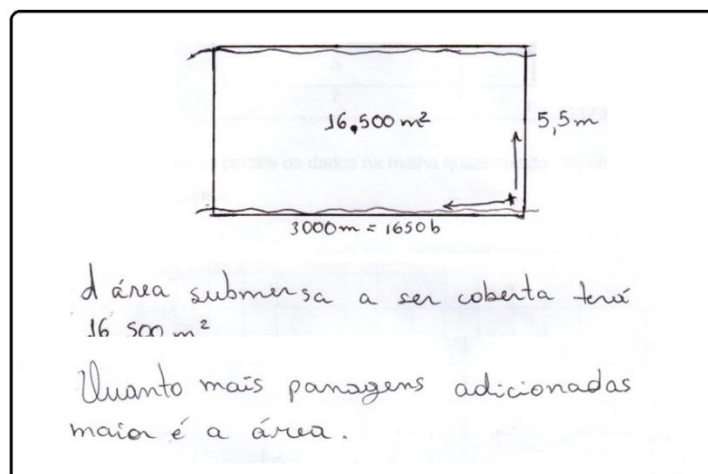 16.500 m²
5,5 m
3000 m = 1650 b
A área submersa a ser coberta terá
16 500 m²
Quanto mais panagens adicionadas
maior é a área.